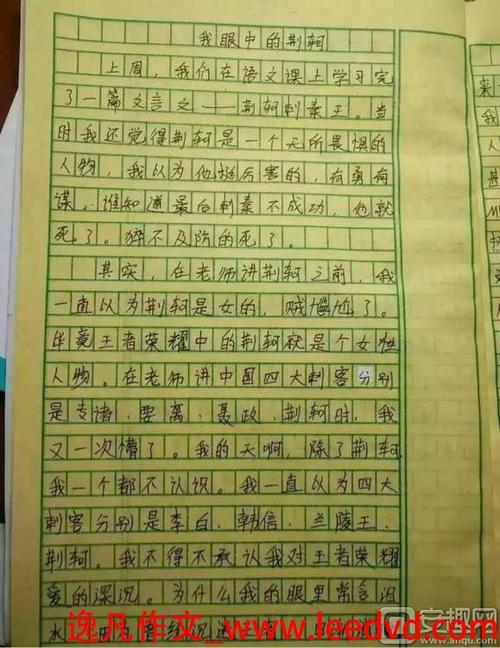 我眼中的荆轲
上周，我们在语文课上学习完
了一篇文言文——荆轲刺秦王。当
时我还觉得荆轲是一个无所畏惧的
人物，我以为他挺厉害的，有勇有
谋。谁知道最后刺秦不成功，他就
死了。猝不及防的死了。
其实，在老师讲荆轲之前，我
一直以为荆轲是女的，贼尴尬了。
毕竟王者荣耀中的荆轲就是个女性
人物。在老师讲中国四大刺客分别
是专诸、要离、聂政、荆轲时，我
又一次懵了。我的天啊，除了荆轲
我一个都不认识。我一直以为四大
刺客分别是李白、韩信、兰陵王、
荆轲。我不得不承认我对王者荣耀
爱的深沉。为什么我的眼里常含泪
水
逸凡作文 www.leedvd.com
安趣网
www.anqu.com
来
我